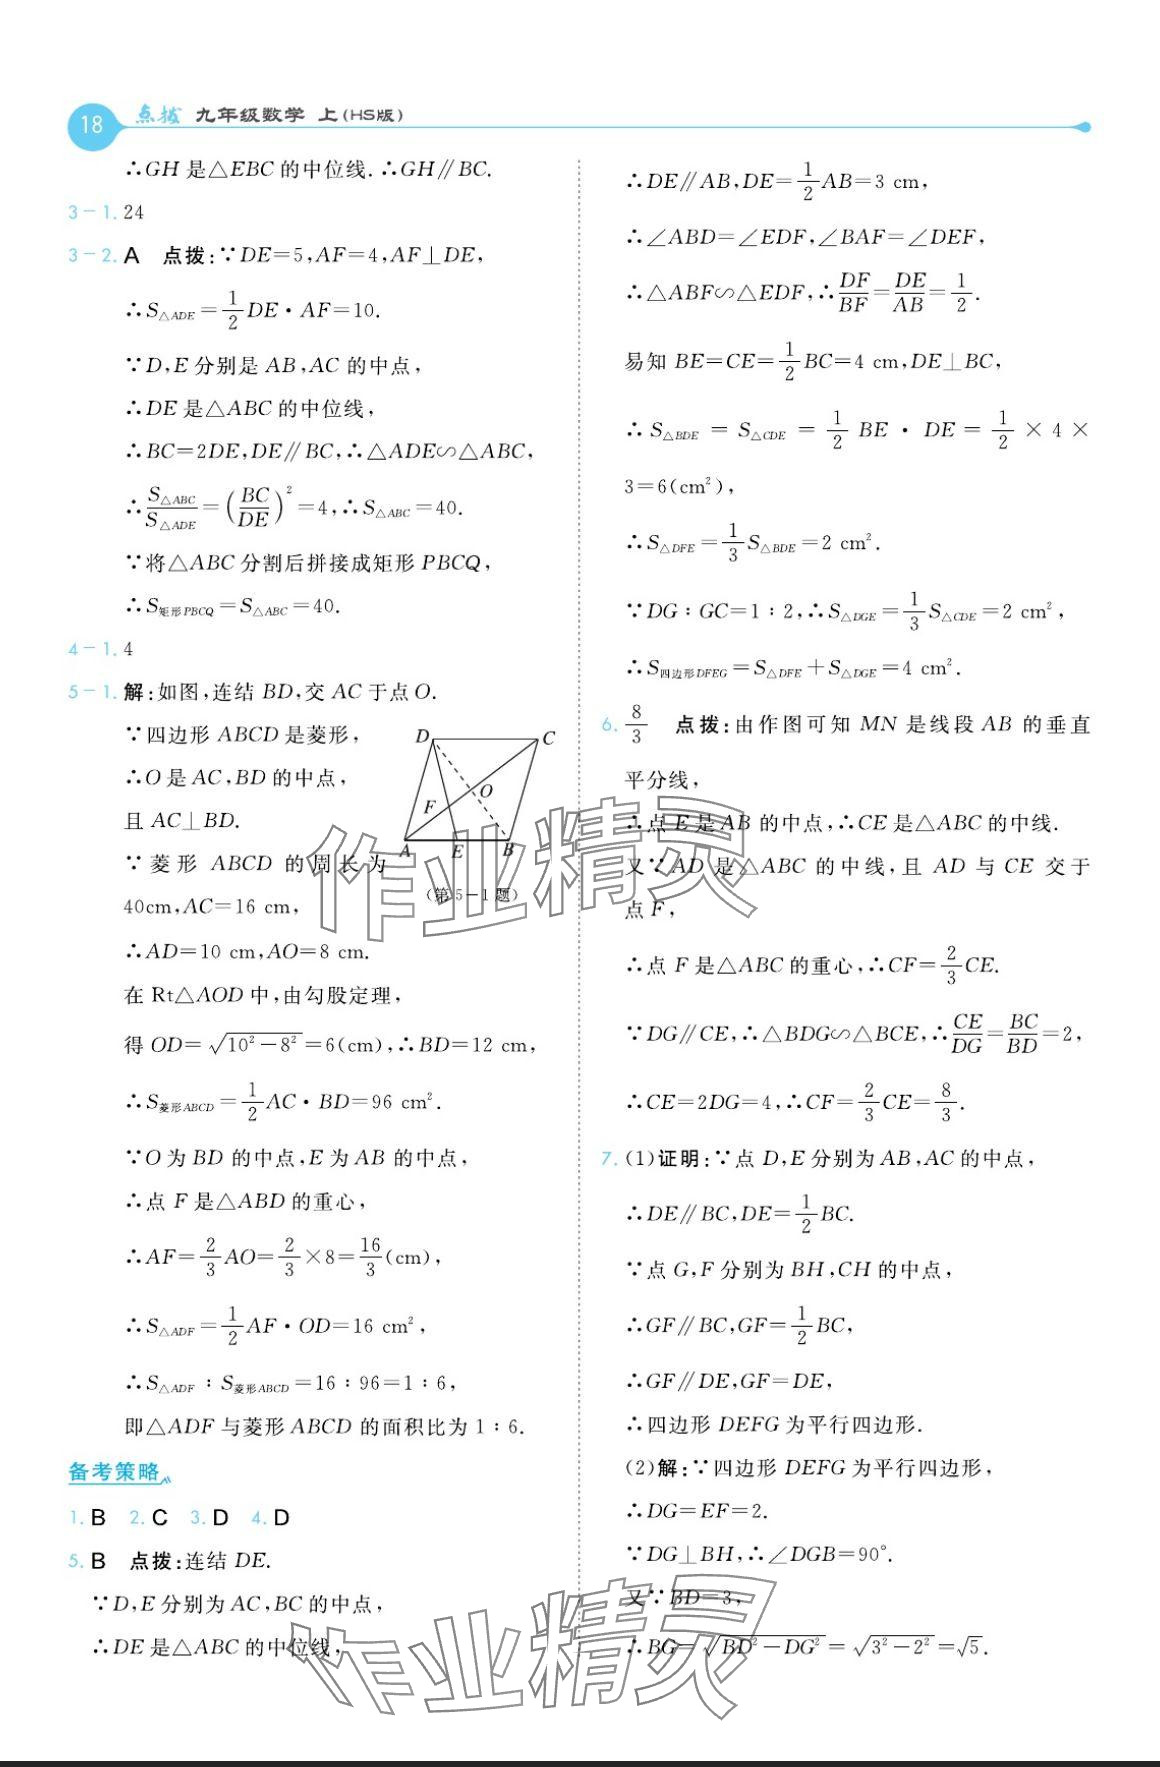 18 点拨 九年级数学 上(HS版)
∴GH 是△EBC 的中位线. ∴GH∥BC.
3-1. 24
3-2. A 点拨:∵DE=5,AF=4,AF⊥DE,
∴S△ADE=1/2DE·AF=10.
∵D,E 分别是 AB,AC 的中点,
∴DE 是△ABC 的中位线,
∴BC=2DE,DE∥BC,∴△ADE∽△ABC,
∴S△ABC/S△ADE=(BC/DE)²=4,∴S△ABC=40.
∵将△ABC 分割后拼接成矩形 PBCQ,
∴S矩形PBCQ=S△ABC=40.
4-1. 4
5-1. 解:如图,连结 BD,交 AC 于点 O.
∵四边形 ABCD 是菱形,
∴O 是 AC,BD 的中点,
且 AC⊥BD.
∵菱形 ABCD 的周长为
40cm,AC=16 cm,
D
C
O
F
A
E
B
(第5-1题)
∴AD=10 cm,AO=8 cm.
在 Rt△AOD 中,由勾股定理,
得 OD=√(10²-8²)=6(cm),∴BD=12 cm,
∴S菱形ABCD=1/2AC·BD=96 cm².
∵O 为 BD 的中点,E 为 AB 的中点,
∴点 F 是△ABD 的重心,
∴AF=2/3AO=2/3×8=16/3(cm),
∴S△ADF=1/2AF·OD=16 cm²,
∴S△ADF∶S菱形ABCD=16∶96=1∶6,
即△ADF 与菱形 ABCD 的面积比为 1∶6.
备考策略
1. B 2. C 3. D 4. D
5. B 点拨:连结 DE.
∵D,E 分别为 AC,BC 的中点,
∴DE 是△ABC 的中位线,
∴DE∥AB,DE=1/2AB=3 cm,
∴∠ABD=∠EDF,∠BAF=∠DEF,
∴△ABF∽△EDF,∴DF/BF=DE/AB=1/2.
易知 BE=CE=1/2BC=4 cm,DE⊥BC,
∴S△BDE=S△CDE=1/2BE·DE=1/2×4×
3=6(cm²),
∴S△DFE=1/3S△BDE=2 cm².
∵DG∶GC=1∶2,∴S△DGE=1/3S△CDE=2 cm²,
∴S四边形DFEG=S△DFE+S△DGE=4 cm².
6. 8/3 点拨:由作图可知 MN 是线段 AB 的垂直
平分线,
∴点 E 是 AB 的中点,∴CE 是△ABC 的中线.
又∵AD 是△ABC 的中线,且 AD 与 CE 交于
点 F,
∴点 F 是△ABC 的重心,∴CF=2/3CE.
∵DG∥CE,∴△BDG∽△BCE,∴CE/DG=BC/BD=2,
∴CE=2DG=4,∴CF=2/3CE=8/3.
7. (1)证明:∵点 D,E 分别为 AB,AC 的中点,
∴DE∥BC,DE=1/2BC.
∵点 G,F 分别为 BH,CH 的中点,
∴GF∥BC,GF=1/2BC,
∴GF∥DE,GF=DE,
∴四边形 DEFG 为平行四边形.
(2)解:∵四边形 DEFG 为平行四边形,
∴DG=EF=2.
∵DG⊥BH,∴∠DGB=90°.
又∵BD=3,
∴BG=√(BD²-DG²)=√(3²-2²)=√5.
作业精灵
作业精灵